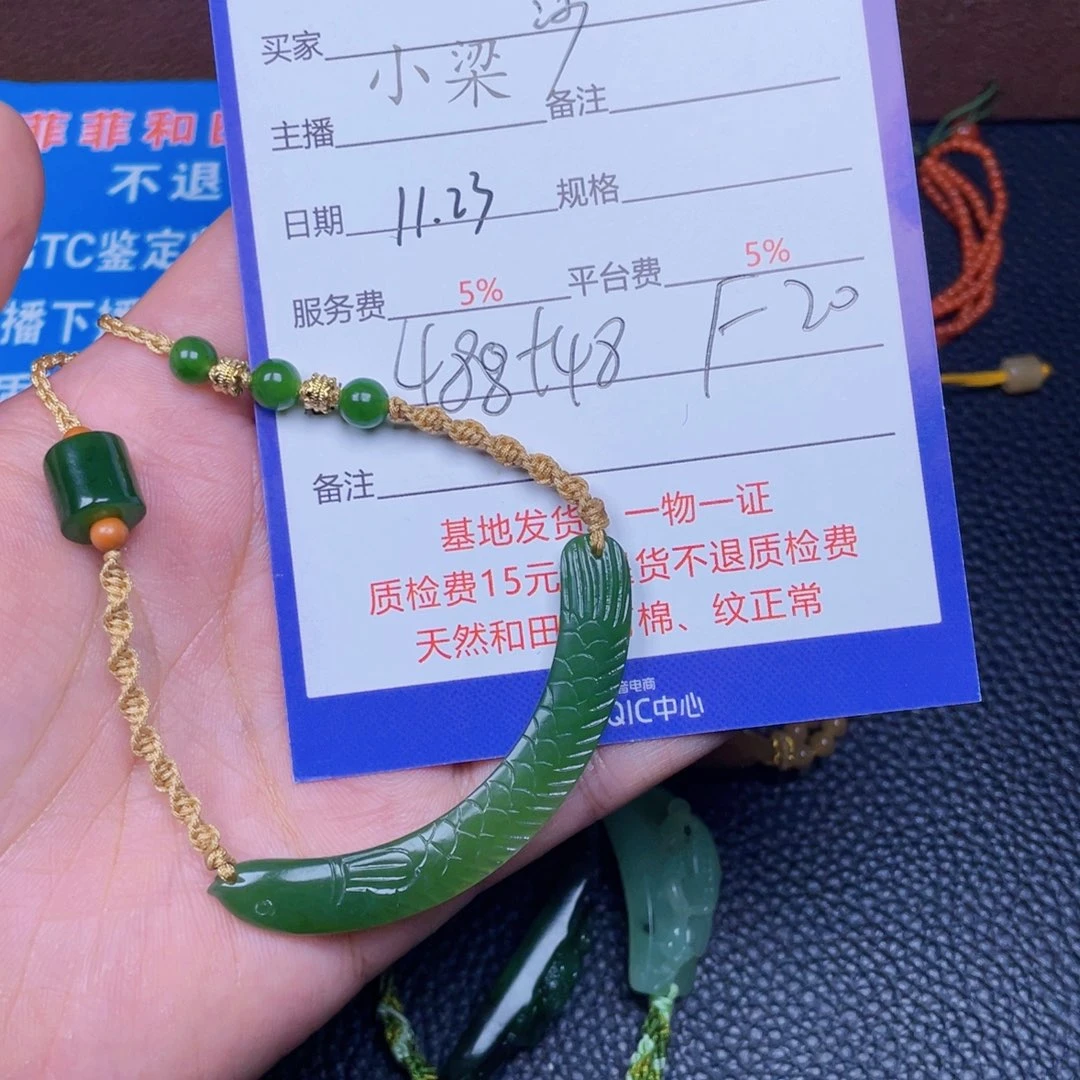 菲菲和田
不退
GTC鉴定
播下播
买家
小梁
主播 备注
日期 11.23 规格
服务费 5% 平台费 5%
488+48 F20
备注
基地发货 一物一证
质检费15元 货不退质检费
天然和田 棉、纹正常
音电商
QIC中心